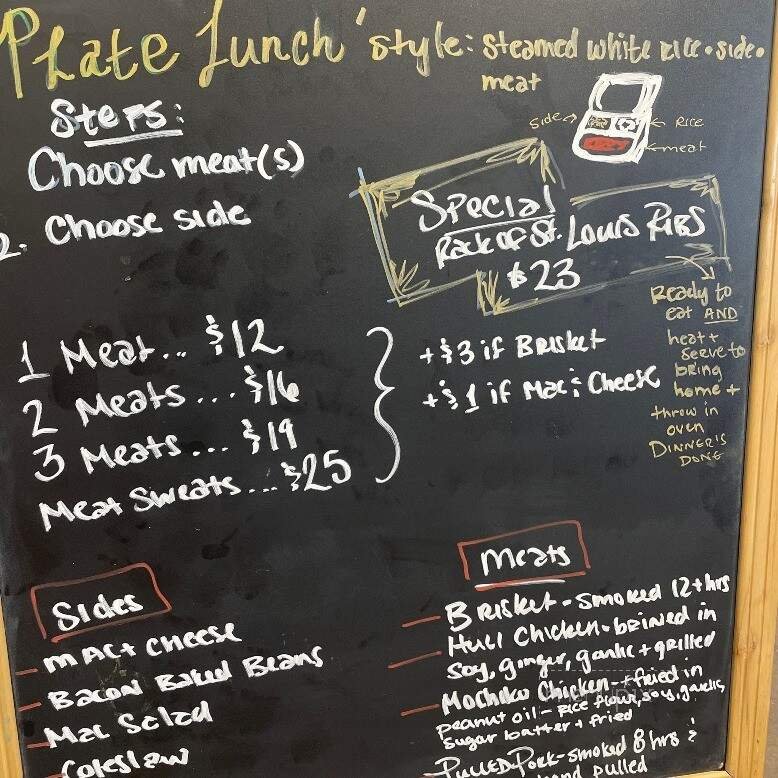 Plate Lunch 'style: steamed white rice • side •
meat
Side Rice
meat
Steps:
Choose meat(s)
2. Choose side
Special
Rack of St. Louis Ribs
$23
Ready to
eat AND
heat +
serve to
bring
home +
throw in
oven
DINNER'S
DONE
1 Meat... $12
2 Meats... $16
3 Meats... $19
Meat Sweats... $25
+$3 if Brisket
+$1 if Mac & Cheese
Sides
- Mac + Cheese
- Bacon Baked Beans
- Mac Salad
- Coleslaw
Meats
- Brisket - smoked 12+ hrs
- Huli Chicken - brined in
soy, ginger, garlic + grilled
- Mochiko Chicken - fried in
peanut oil - rice flour, soy, garlic,
sugar batter + fried
- Pulled Pork - smoked 8 hrs &
hand pulled